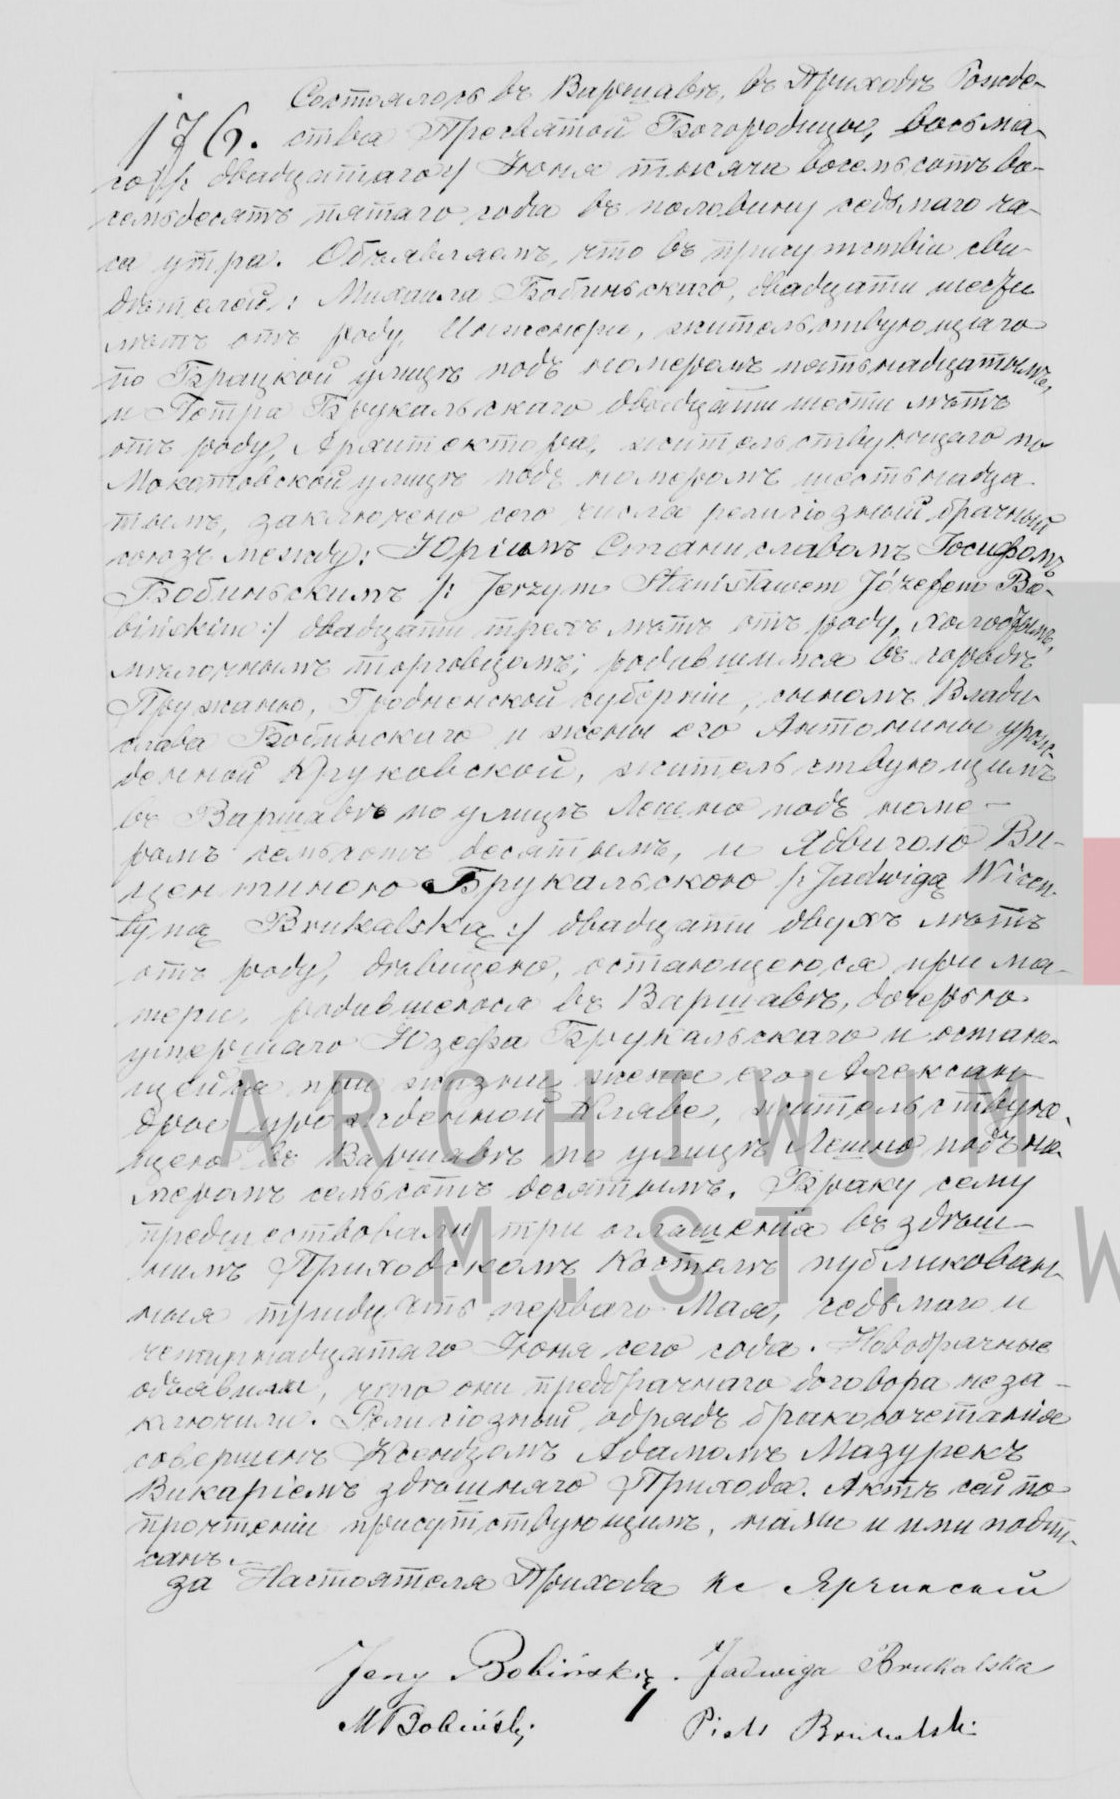 176.
Состоялось въ Варшавѣ, въ Приходѣ Рожде-
ства Пресвятой Богородицы, восьма-
го /: двадцатаго :/ Іюня тысяча восемьсотъ во-
семьдесятъ пятаго года въ половину седьмаго ча-
са утра. Объявляемъ, что въ присутствіи сви-
дѣтелей: Михаила Бобиньскаго, двадцати шести
лѣтъ отъ роду, Инженера, жительствующаго
по Брацкой улицѣ подъ номеромъ пятьнадцатымъ,
и Петра Брукальскаго двадцати шести лѣтъ
отъ роду, Архитектора, жительствующаго по
Мокотовской улицѣ подъ номеромъ шестьнадца-
тымъ, заключено сего числа религіозный брачный
союзъ между: Юріемъ Станиславомъ Іосифомъ
Бобиньскимъ /: Jerzym Stanisławem Józefem Bo-
bińskim :/ двадцати трехъ лѣтъ отъ роду, холостымъ,
мѣлочнымъ торговцомъ; родившимся въ городѣ
Пружаню, Гродненской губерніи, сыномъ Влади-
слава Бобинскаго и жены его Антонины урож-
денной Круковской, жительствующимъ
въ Варшавѣ по улицѣ Лешно подъ номе-
ромъ семьсотъ десятымъ, и Ядвигою Ви-
центиною Брукальскою /: Jadwigą Wicen-
tyną Brukalską :/ двадцати двухъ лѣтъ
отъ роду, дѣвицею, остающеюся при ма-
тери, родившеюся въ Варшавѣ, дочерью
умершаго Юзефа Брукальскаго и остаю-
щейся при жизни жены его Алексан-
дры урожденной Кляве, жительствую-
щею въ Варшавѣ по улицѣ Лешно подъ но-
меромъ семьсотъ десятымъ. Браку сему
предшествовали три оглашенія въ здѣш-
нимъ Приходскомъ Костелѣ публикован-
ныя тридцать перваго Мая, седьмаго и
четырнадцатаго Іюня сего года. Новобрачные
объявили, что они предбрачнаго договора не за-
ключили. Религіозный обрядъ бракосочетанія
совершенъ Ксендзомъ Адамомъ Мазурекъ
Викаріемъ здѣшняго Прихода. Актъ сей по
прочтеніи присутствующимъ, нами и ими подпи-
санъ.
за Настоятеля Прихода Кс
Jerzy Bobiński. Jadwiga Brukalska
M Bobiński Piotr Brukalski
ARCHIWUM
M. ST. W